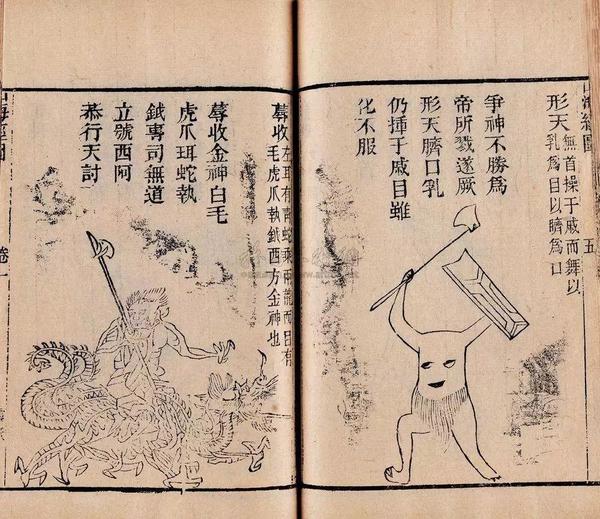 形天無首操干戚而舞以
乳為目以臍為口
爭神不勝爲
帝所戮遂厥
形天臍口乳
仍揮干戚目雖
化不服
五
蓐收左耳有青蛇乘兩龍面目有
毛虎爪執鉞西方金神也
蓐收金神白毛
虎爪珥蛇執
鉞專司無道
立號西阿
恭行天討
山海經圖
卷一